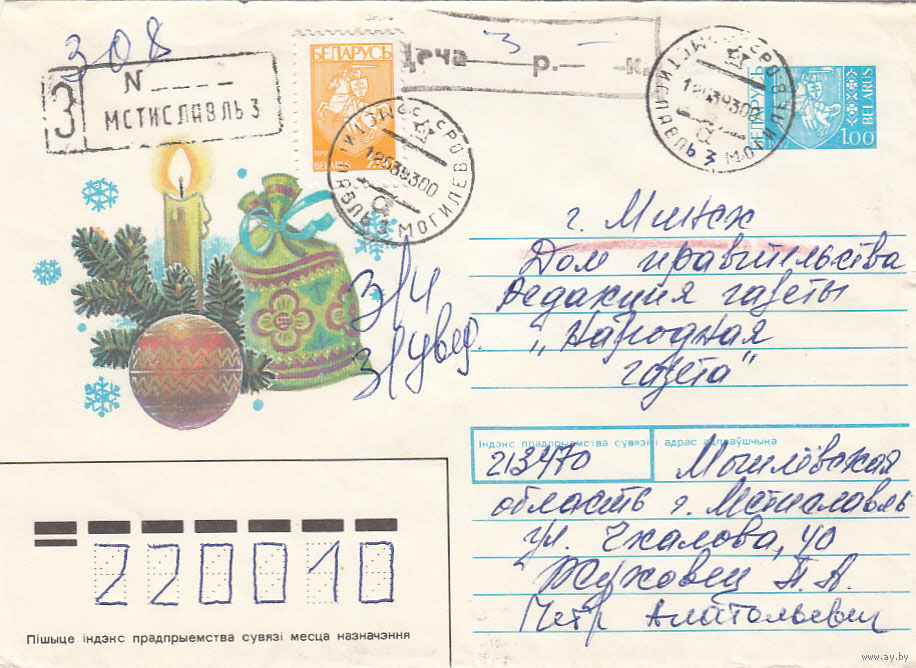 308
З
N
МСТИСЛАВЛЬ 3
БЕЛАРУСЬ
BELARUS
дача 3 р. – к.
МОГИЛЕВ
1203939300
БЕЛАРУСЬ
BELARUS
1.00
МОГИЛЕВ
г. Минск
Дом правительства
Редакция газеты
„Народная
газета"
з/ч
з/увед.
Індэкс прадпрыемства сувязі і адрас адпраўшчыка
213470
Могилёвская
область г. Мстиславль
ул. Чкалова, 40
Жуковец П. А.
Петр Анатольевич
220010
Пішыце індэкс прадпрыемства сувязі месца назначэння
www.ay.by